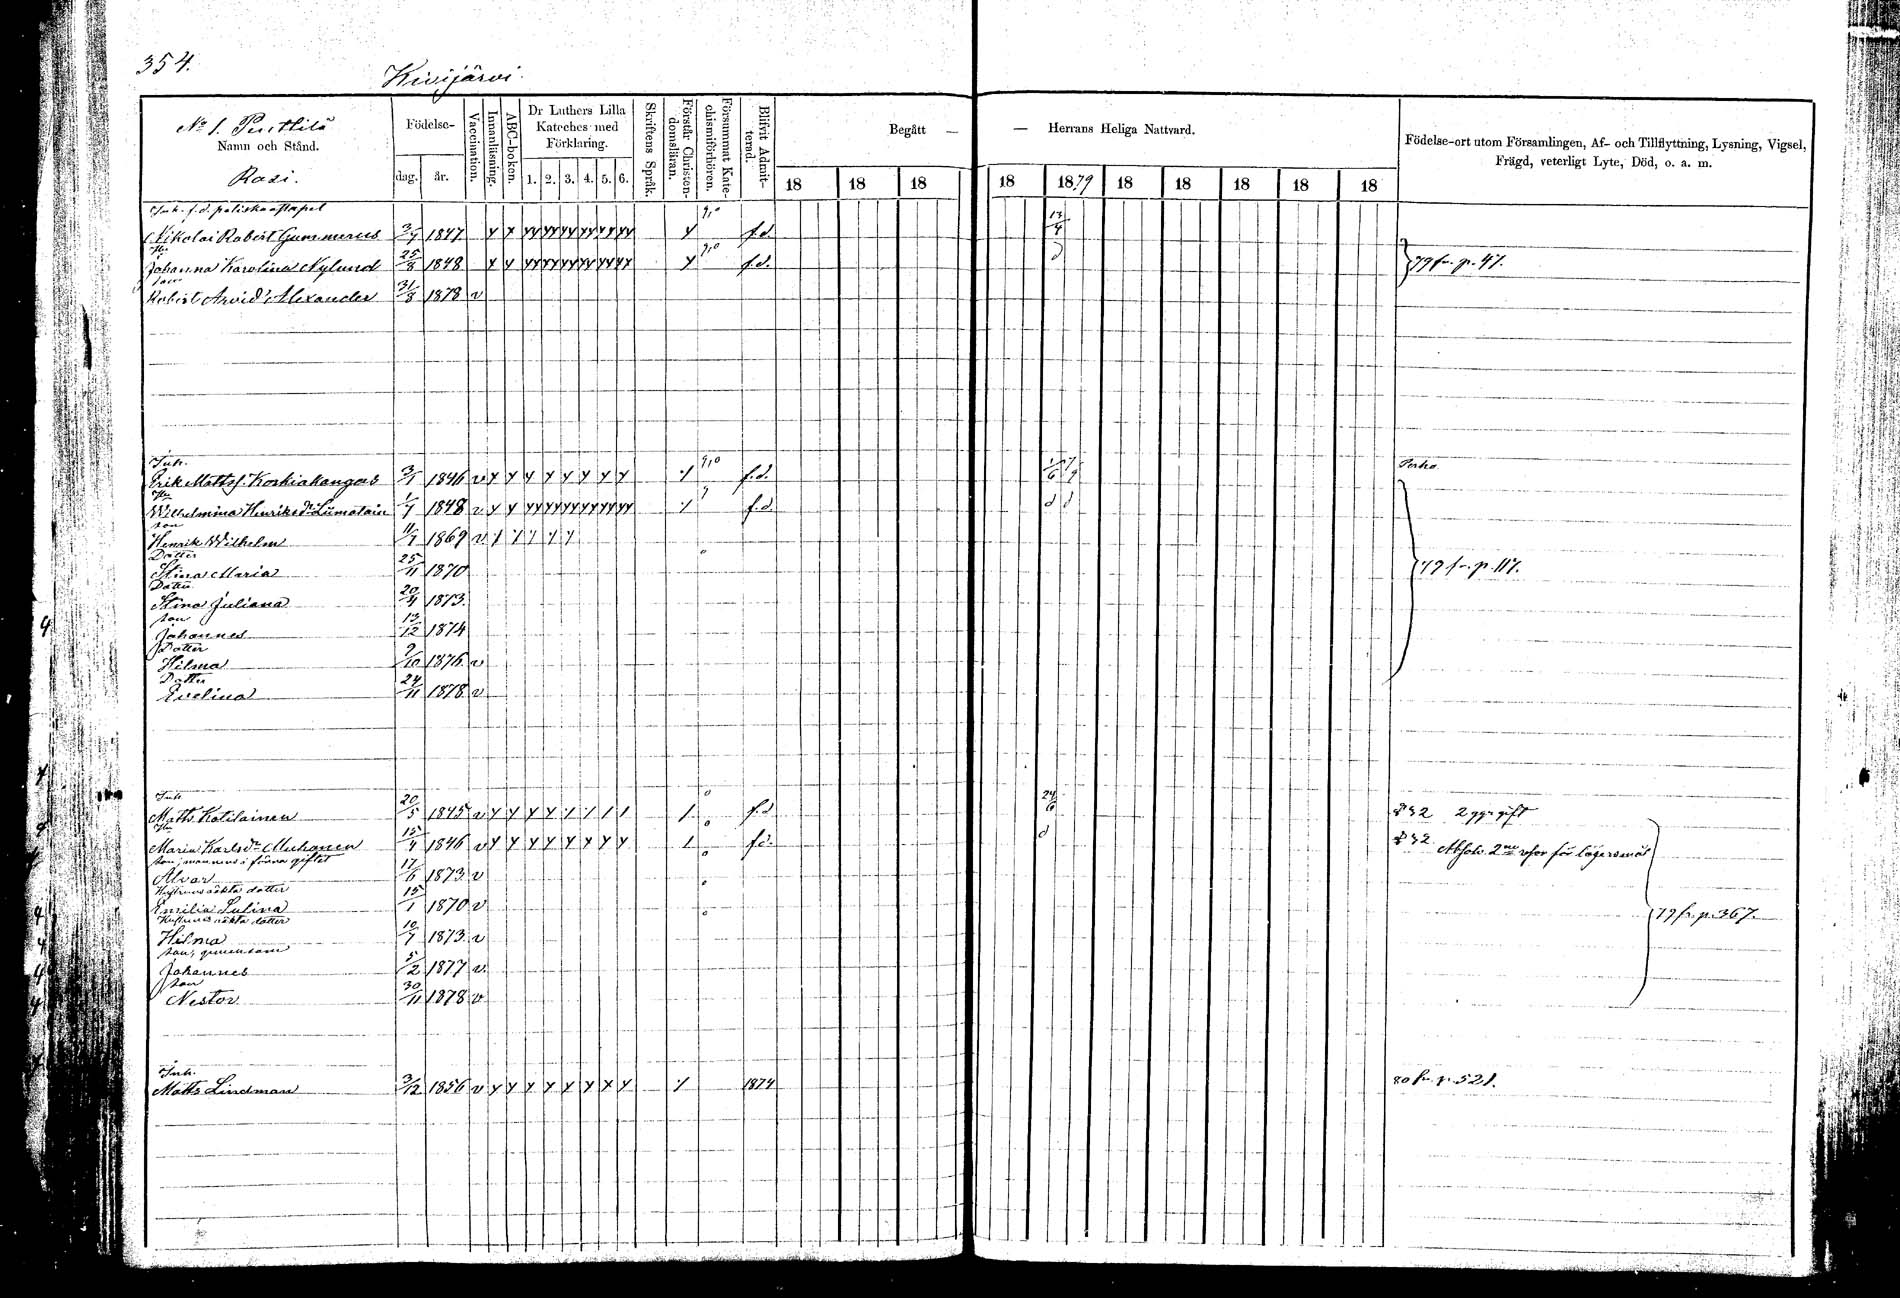 354.
Kivijärvi.
No 1. Penttilä
Namn och Stånd.
Rasi.
Födelse-
dag. år.
Vaccination.
Innanläsning.
ABC-boken.
Dr Luthers Lilla Kateches med Förklaring.
1. 2. 3. 4. 5. 6.
Skriftens Språk.
Förstår Christendomsläran.
Försummat Katechismiförhören.
Blifvit Admitterad.
Begått — — Herrans Heliga Nattvard.
18 18 18 18 1879 18 18 18 18 18
Födelse-ort utom Församlingen, Af- och Tillflyttning, Lysning, Vigsel,
Frägd, veterligt Lyte, Död, o. a. m.
Inh. f.d. poliskonstapel
Nikolai Robert Gummerus 3/7 1847 f.d. 13/4
Hu
Johanna Karolina Nylund 25/8 1848 f.d. d 79 fr. p. 47.
son
Robert Arvid Alexander 31/8 1878 v
Inh.
Erik Mattsf. Koskiakangas 3/1 1846 v f.d. Perho
Hu
Wilhelmina Henriksdr Liimatain 1/7 1848 v f.d. d d
son
Henrik Wilhelm 11/7 1869 v
Dotter
Stina Maria 25/11 1870 79 fr. p. 117.
Dotter
Stina Juliana 20/4 1873.
son
Johannes 13/12 1874
Dotter
Hilma 9/10 1876 v
Dotter
Evelina 24/11 1878 v
Inh.
Matts Kotilainen 20/5 1845 v f.d. 24/6 2 ggr gift
Hu
Maria Karlsdr Muhonen 15/4 1846 v f.d. d Absolv. 2ne resor för lägersmål
son, mannens i förra giftet
Alvar 17/6 1873 v
Hustruns oäkta dotter
Emilia Sulina 15/1 1870 v
Hustruns oäkta dotter 79 fr. p. 367.
Hilma 10/7 1873 v
son, gemensam
Johannes 5/2 1877 v
son
Nestor 30/11 1878 v
Inh.
Matts Lindman 3/12 1856 v 1874 80 fr. p. 521.